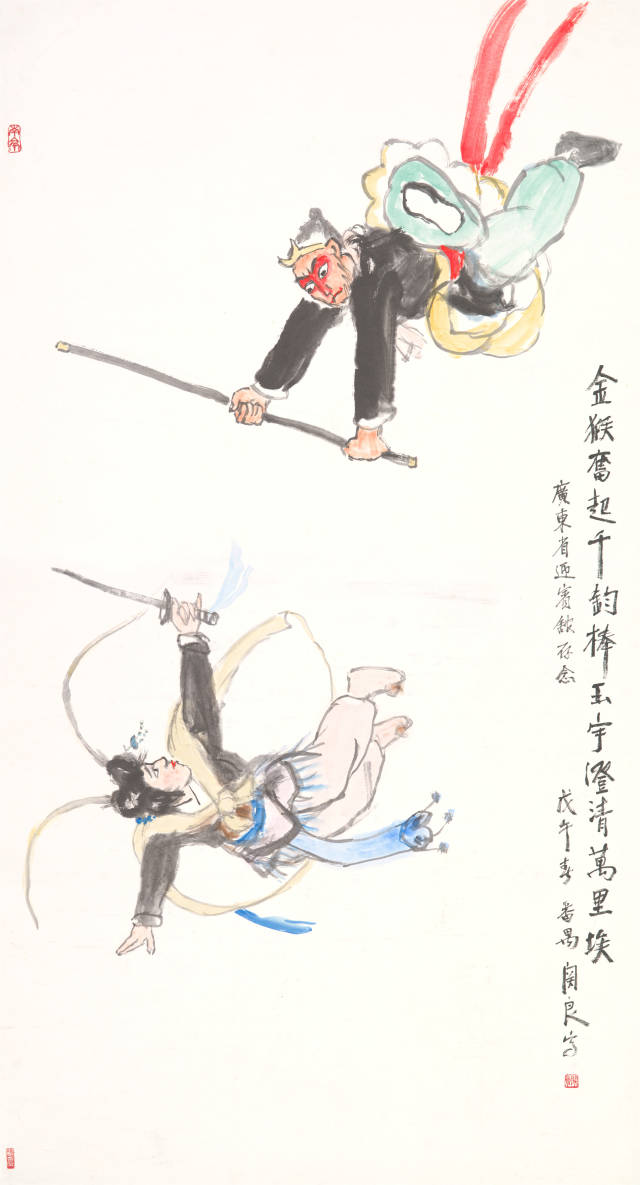 金猴奮起千鈞棒玉宇澄清萬里埃
廣東省迎賓館存念
戊午春番禺關良寫